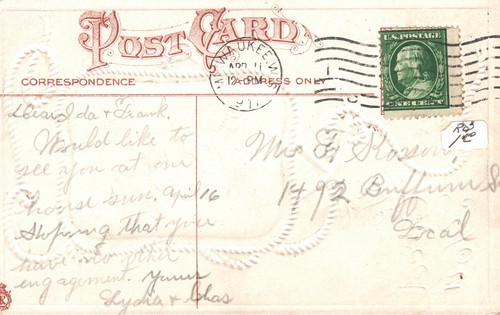 POST CARD
CORRESPONDENCE
ADDRESS ONLY
MILWAUKEE, WIS.
APR 11
12 PM
1911
U.S. POSTAGE
ONE CENT
Dear Ida & Frank.
Would like to
see you at our
house Sun. April 16
Hopping that you
have no other
engagement. Yours
Lydia & Chas
Mr F. Klossow,
1492 Buffum S
Local